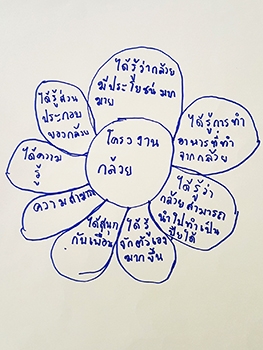 โครงงาน
กล้วย
ได้รู้ว่ากล้วย
มีประโยชน์ มาก
มาย
ได้รู้การทำ
อาหารที่ทำ
จากกล้วย
ได้รู้ว่า
กล้วยสามารถ
นำไปทำเป็น
ปุ๋ยได้
ได้รู้
จักตัวเอง
มากขึ้น
ได้สนุก
กับเพื่อน
ความสามารถ
ได้ความ
รู้
ได้รู้ส่วน
ประกอบ
ของกล้วย